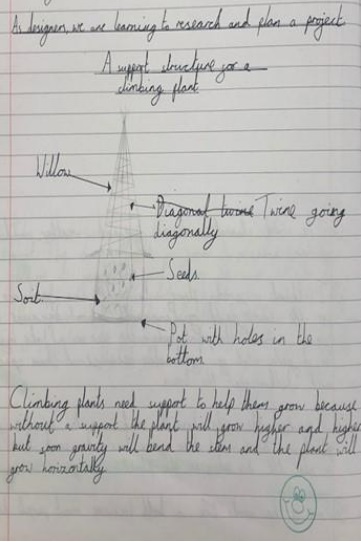 As designers, we are learning to research and plan a project
A support structure for a
climbing plant
Willow
Diagonal twine Twine going
diagonally
Seeds
Pot with holes in the
bottom
Climbing plants need support to help them grow because
without a support the plant will grow higher and higher
but soon gravity will bend the stem and the plant will
grow horizontally